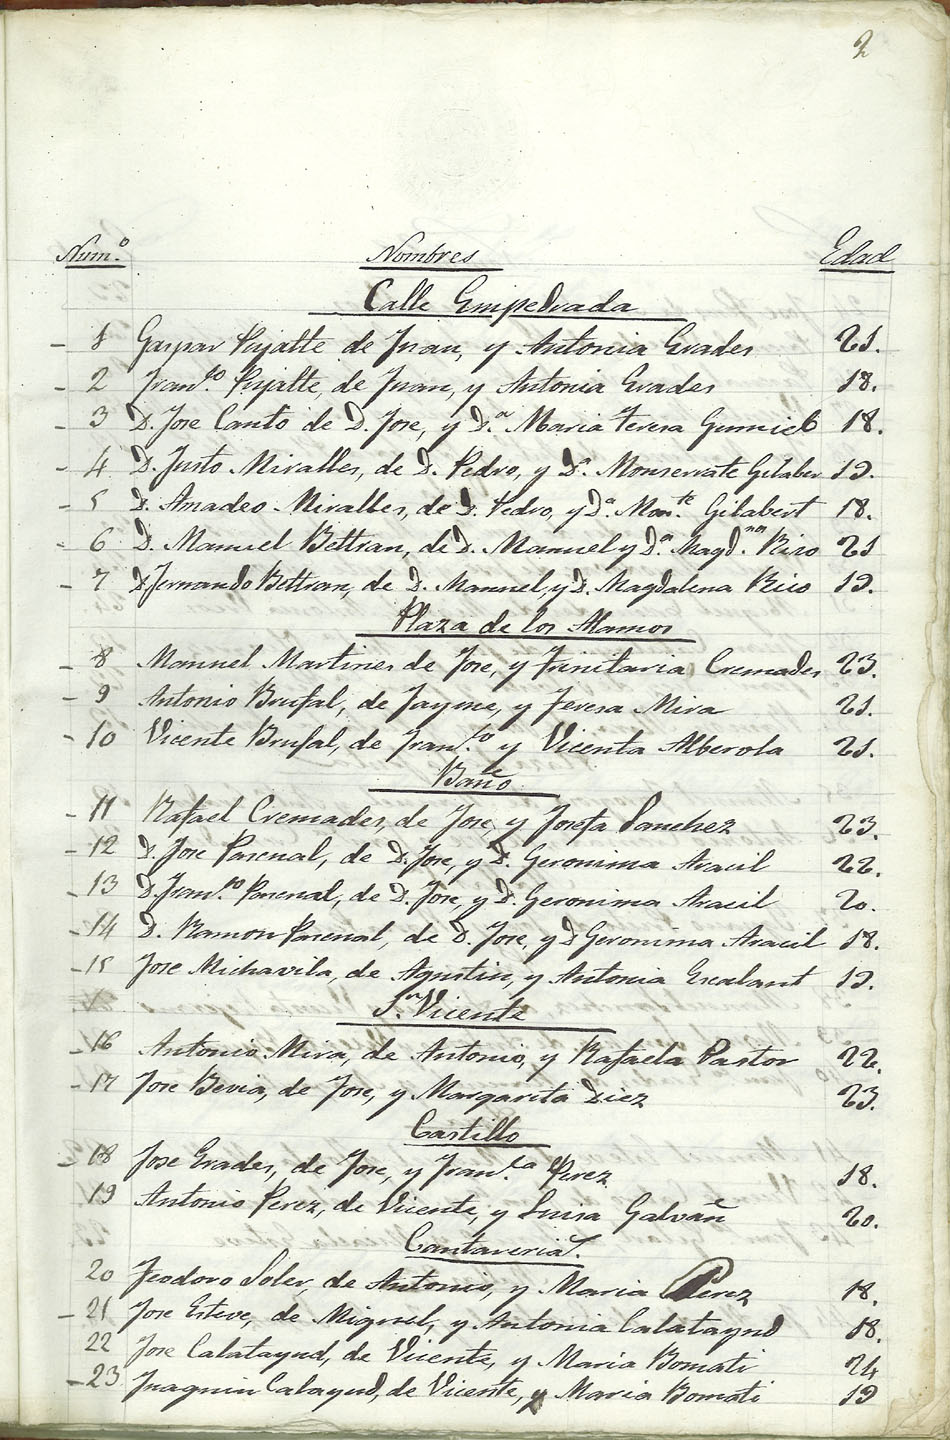 2
Num.º Nombres Edad
Calle Empedrada
1 Gaspar Pujalte de Juan, y Antonia Erades 21.
2 Fran.co Pujalte, de Juan, y Antonia Erades 18.
3 D. Jose Canto de D. Jose, y D.ª Maria Teresa Gumiel 18.
4 D. Justo Miralles, de D. Pedro, y D.ª Monserrate Gilaber 19.
5 D. Amadeo Miralles, de D. Pedro, y D.ª Mon.te Gilabert 18.
6 D. Manuel Beltran, de D. Manuel y D.ª Magd.na Rizo 21
7 D. Fernando Beltran, de D. Manuel, y D. Magdalena Rico 19.
Plaza de los Alamos
8 Manuel Martines de Jose, y Trinitaria Cremades 23.
9 Antonio Brufal, de Jayme, y Teresa Mira 21.
10 Vicente Brufal, de Fran.co y Vicenta Alberola 21.
Baño
11 Rafael Cremades, de Jose, y Josefa Sanchez 23.
12 D. Jose Pascual, de D. Jose, y D. Geronima Aracil 22.
13 D. Fran.co Pascual, de D. Jose, y D. Geronima Aracil 20.
14 D. Ramon Pascual, de D. Jose, y D Geronima Aracil 18.
15 Jose Michavila, de Agustin, y Antonia Escalant 19.
S.n Vicente
16 Antonio Mira, de Antonio, y Rafaela Pastor 22.
17 Jose Bevia, de Jose, y Margarita Diez 23.
Castillo
18 Jose Erades, de Jose, y Fran.ca Perez 18.
19 Antonio Perez, de Vicente, y Luisa Galvañ 20.
Cantareria
20 Teodoro Soler, de Antonio, y Maria Perez 18.
21 Jose Esteve, de Miguel, y Antonia Calatayud 18.
22 Jose Calatayud, de Vicente, y Maria Bomati 24
23 Juaquin Calayud, de Vicente, y Maria Bomati 19